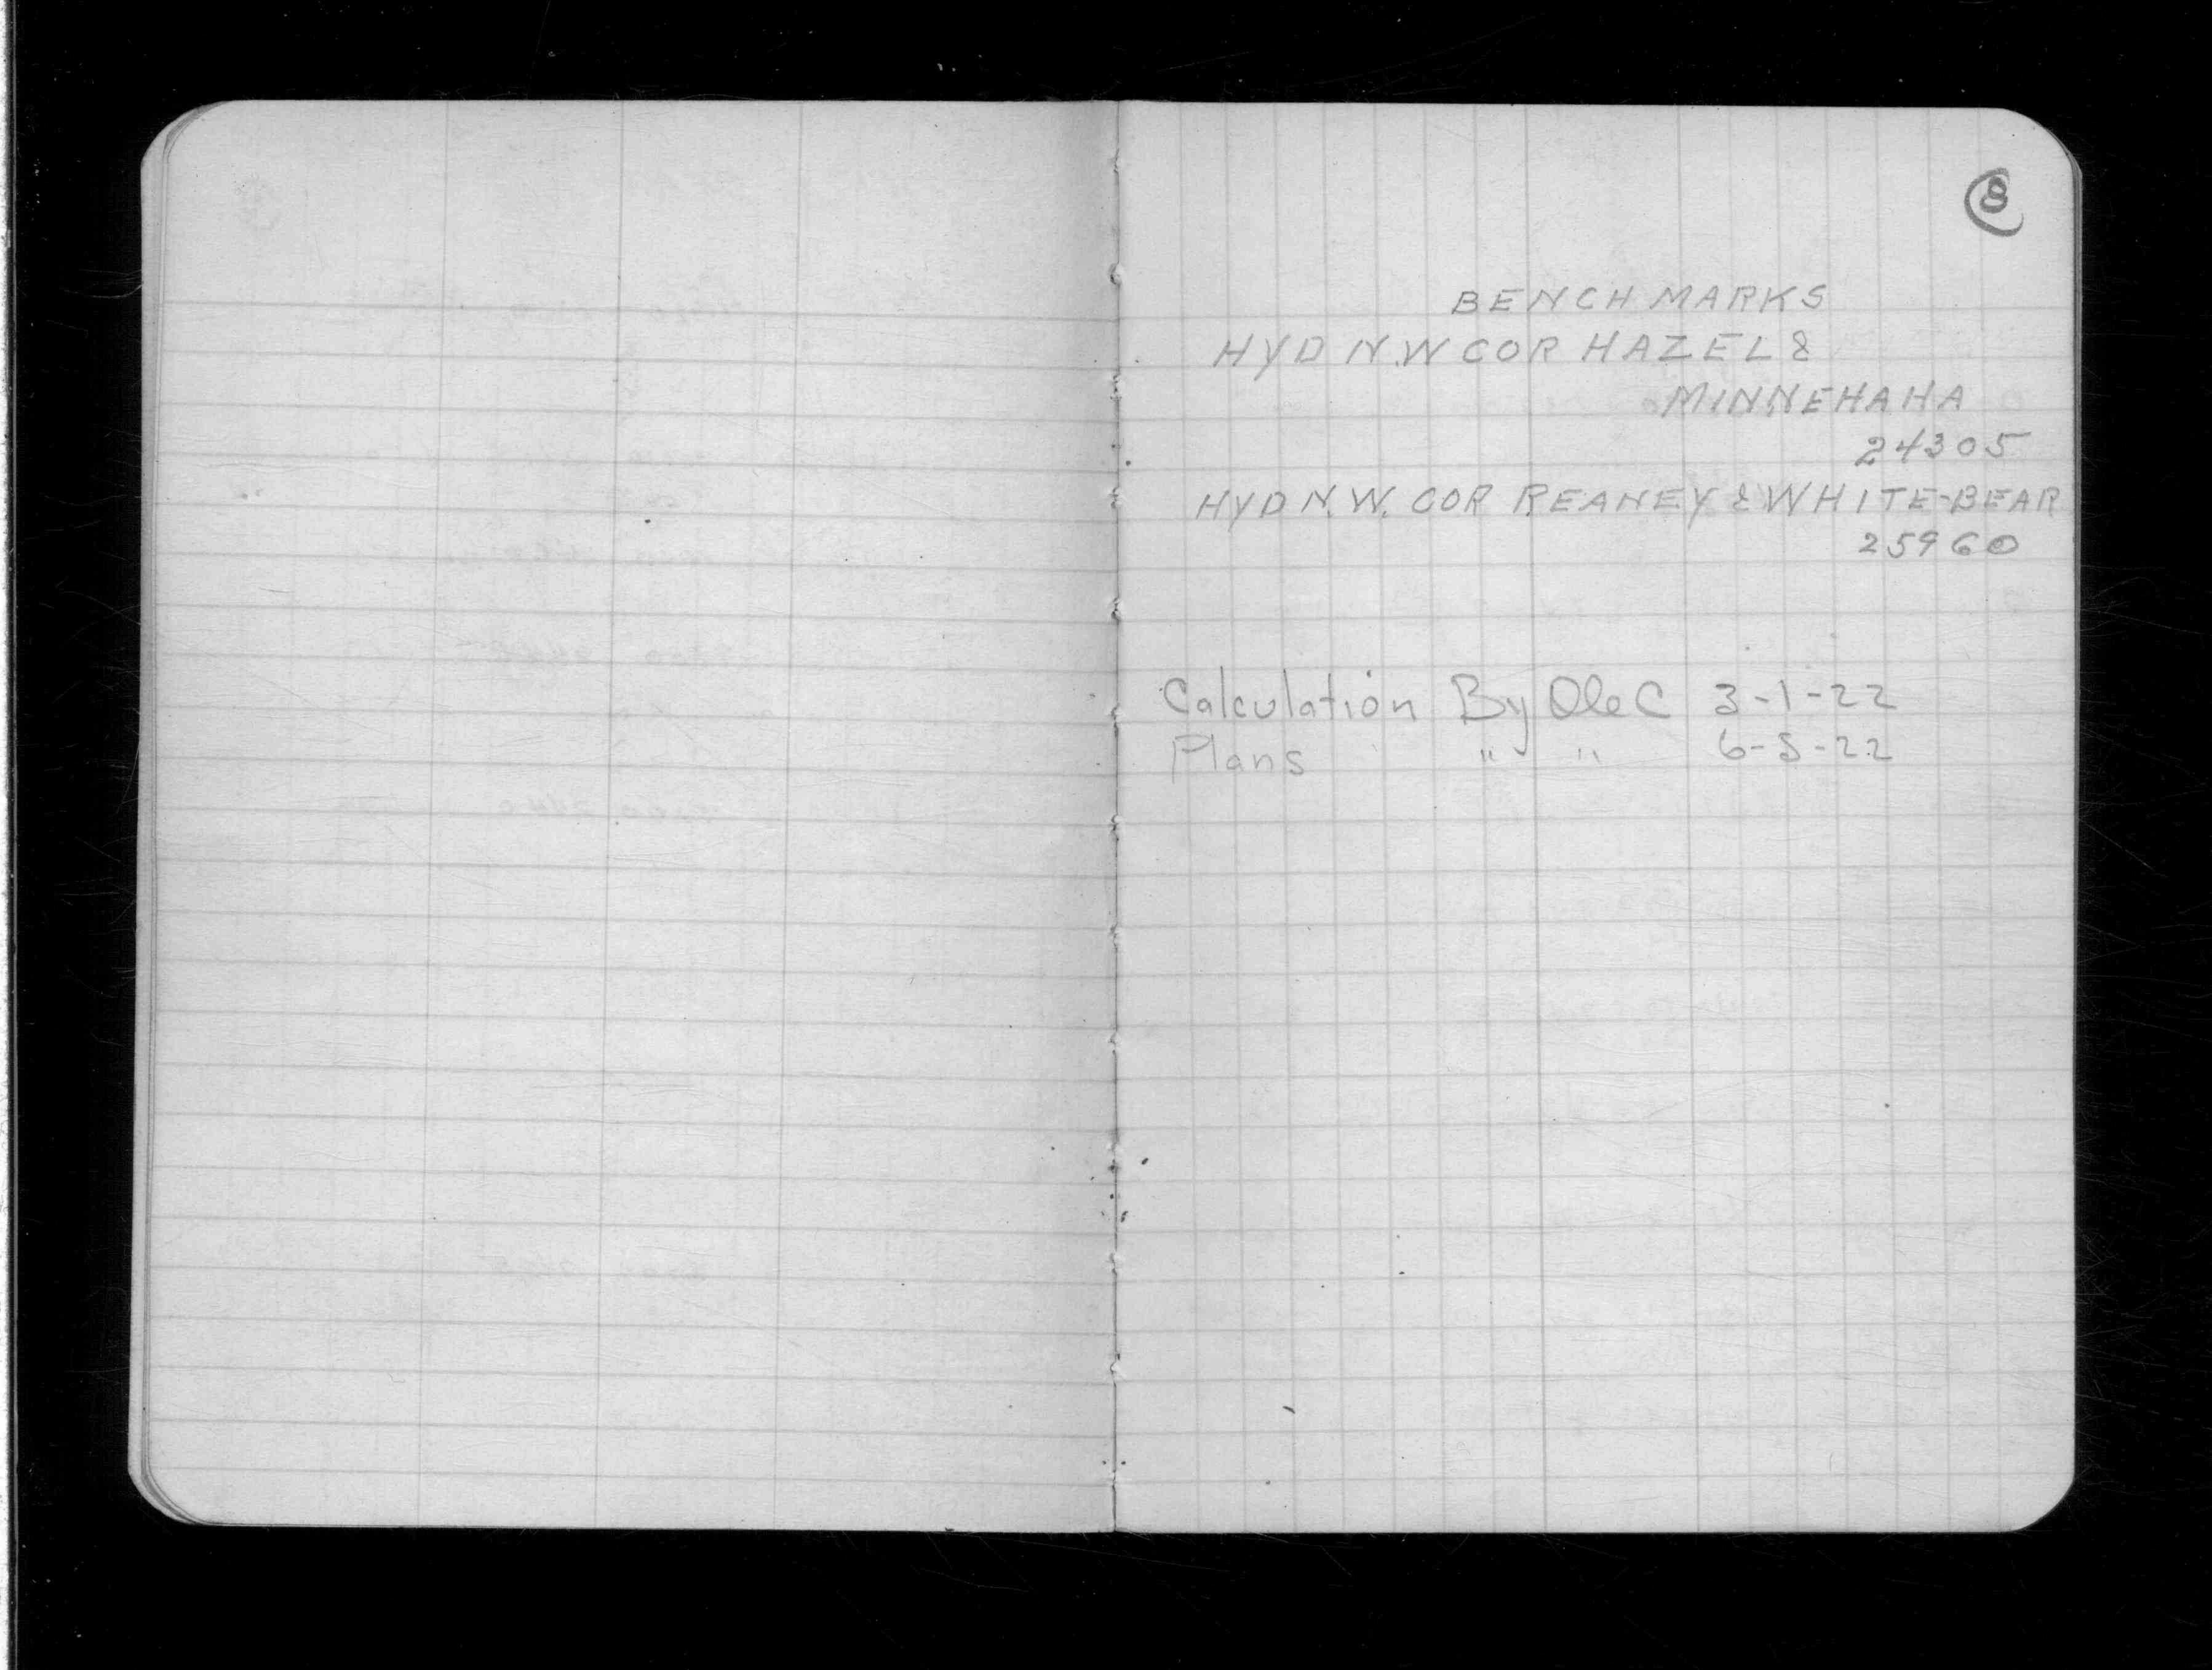 8
BENCH MARKS
HYD N.W COR HAZEL &
MINNEHAHA
24305
HYD N.W. COR REANEY & WHITE-BEAR
25960
Calculation By Ole C 3-1-22
Plans " " 6-5-22